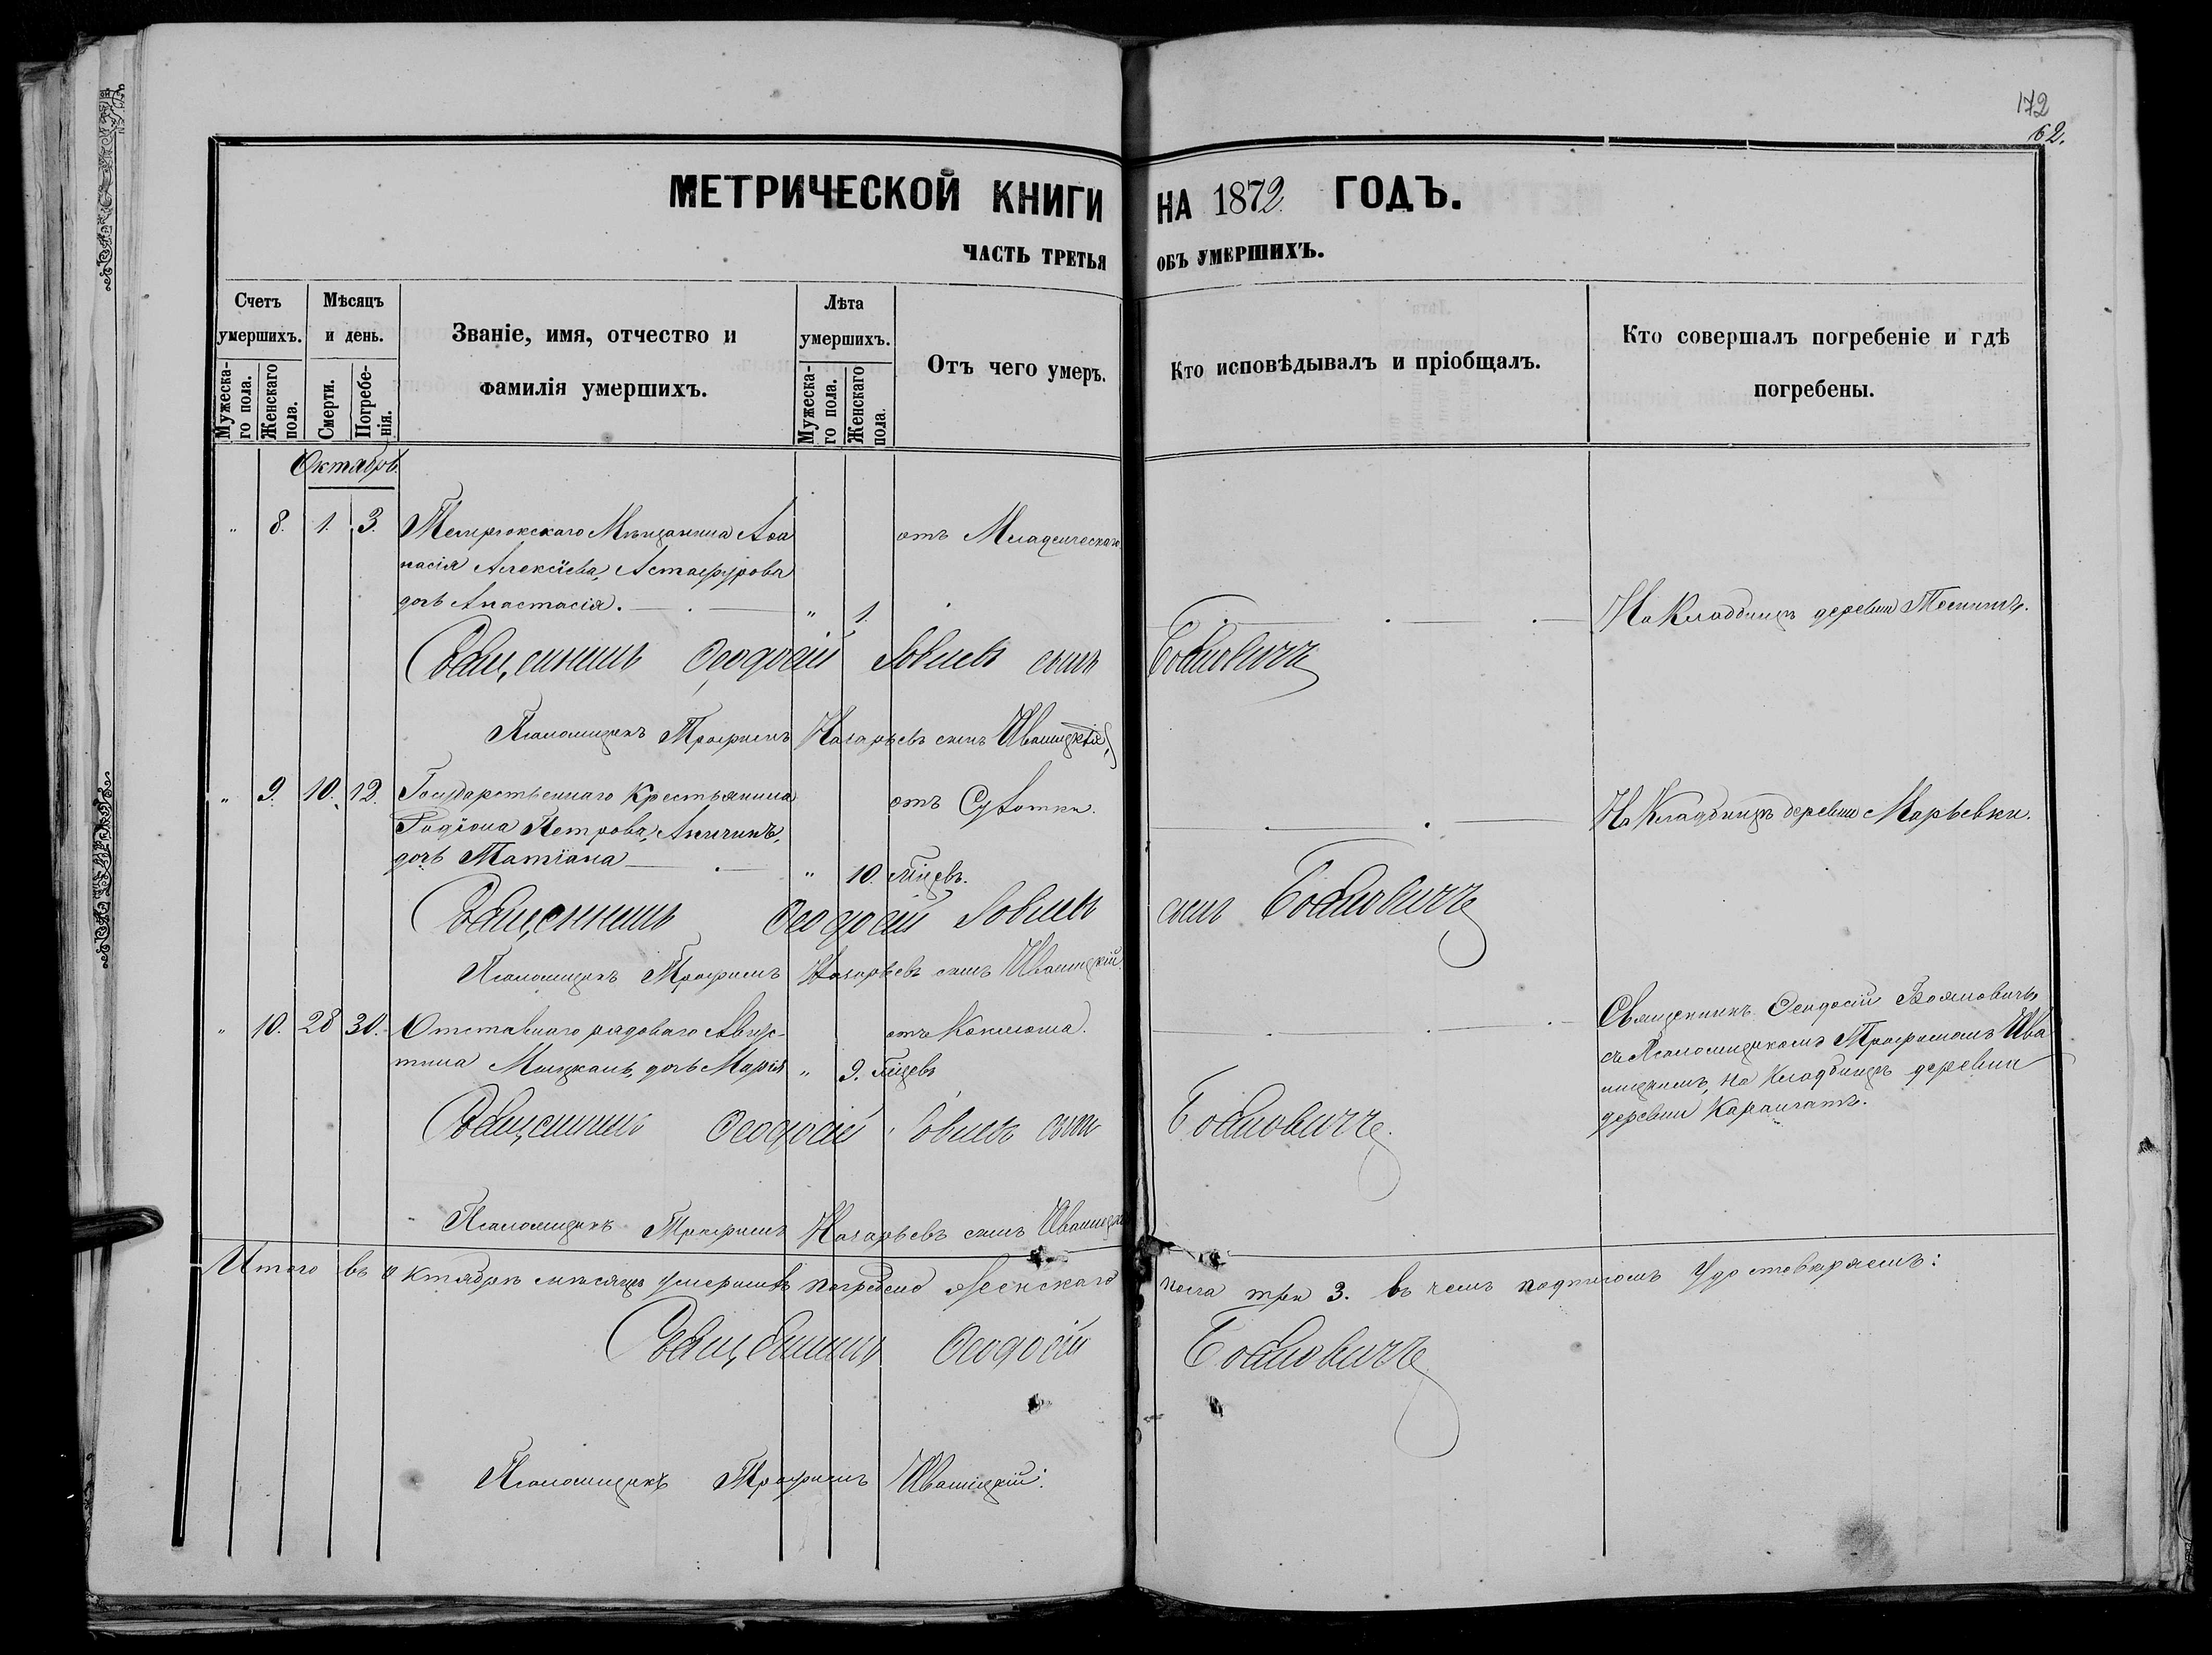 172
62.
МЕТРИЧЕСКОЙ КНИГИ НА 1872 ГОДЪ.
ЧАСТЬ ТРЕТЬЯ ОБЪ УМЕРШИХЪ.
Счетъ умершихъ.
Мужеска-го пола.
Женскаго пола.
Мѣсяцъ и день.
Смерти.
Погребе-нія.
Званіе, имя, отчество и фамилія умершихъ.
Лѣта умершихъ.
Мужеска-го пола.
Женскаго пола.
Отъ чего умеръ.
Кто исповѣдывалъ и пріобщалъ.
Кто совершалъ погребеніе и гдѣ погребены.
Октябрь.
„ 8. 1. 3. Темрюкскаго Мѣщанина Афа отъ Младенческаго
насія Алексіева,
дочь Анастасія. „ 1. На Кладбищѣ деревни
Священникъ Ѳеодосій сынъ
Псаломщикъ Трофимъ Назарьевъ сынъ Иваницкій
„ 9. 10. 12. Государственнаго Крестьянина отъ Сухотки. На Кладбищѣ деревни Марьевки.
Родіона Петрова, Аничинъ,
дочь Татіана „ 10. мѣсцевъ.
Священникъ Ѳеодосій сынъ
Псаломщикъ Трофимъ Назарьевъ сынъ Иваницкій
„ 10. 28 30. Отставнаго рядоваго Авгус- отъ Коклюша. Священникъ Ѳеодосій
тина дочь Марія „ 9. мѣсцевъ съ Псаломщикомъ Трофимомъ Ива
ницкимъ, на Кладбищѣ деревни
деревни
Священникъ Ѳеодосій сынъ
Псаломщикъ Трофимъ Назарьевъ сынъ
Итого въ октябрѣ мѣсяцѣ умершихъ погребено женскаго пола три 3. въ чемъ подписомъ удостовѣряемъ:
Священникъ Ѳеодосій
Псаломщикъ Трофимъ Иваницкій.